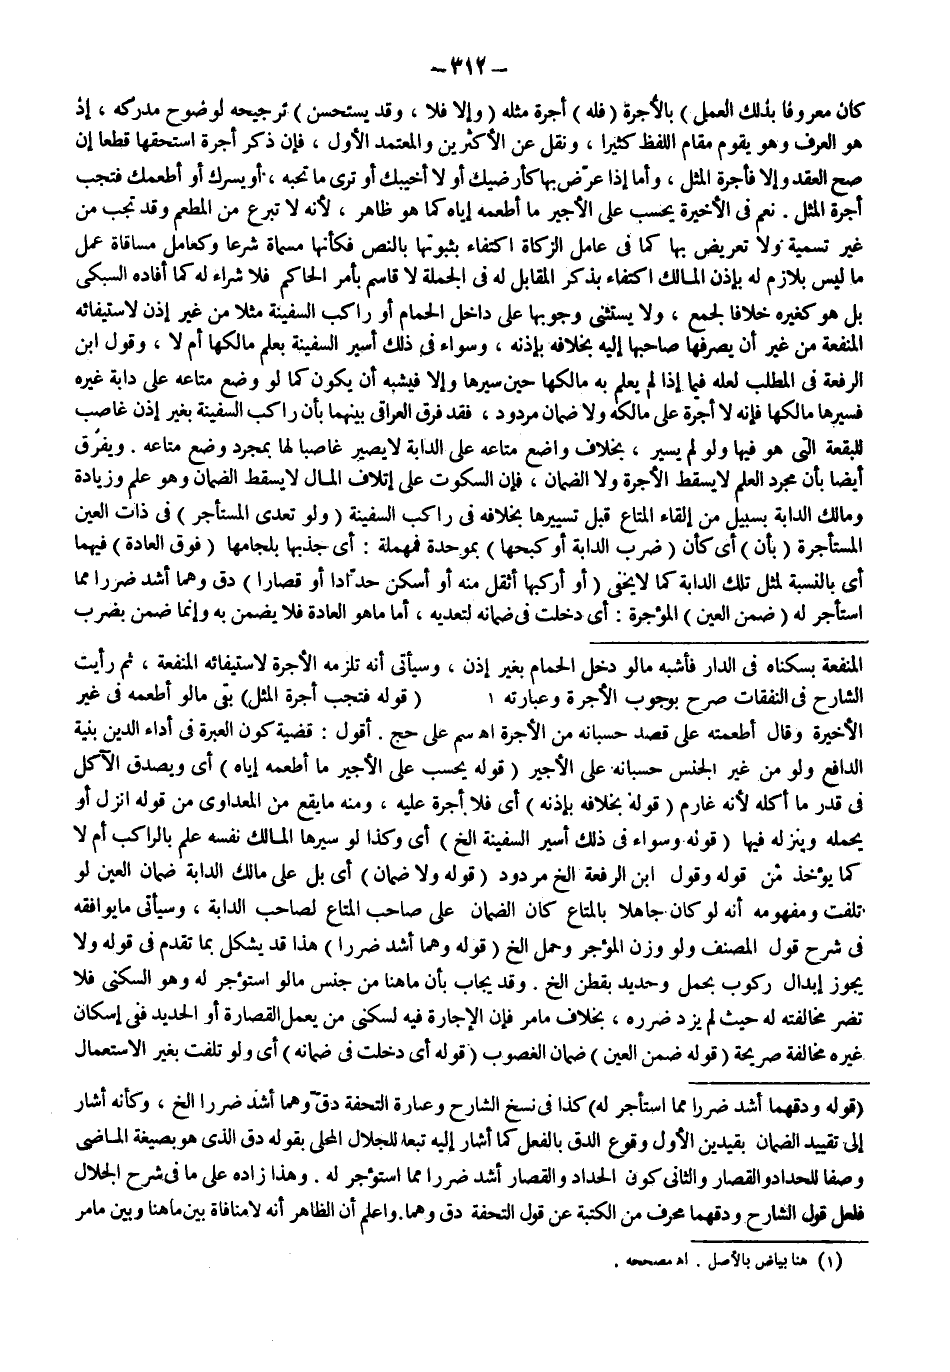 – ٣١٢ –
كان معروفا بذلك العمل ) بالأجرة ( فله ) أجرة مثله ( وإلا فلا ، وقد يستحسن ) ترجيحه لوضوح مدركه ، إذ
هو العرف وهو يقوم مقام اللفظ كثيرا ، ونقل عن الأكثرين والمعتمد الأول ، فإن ذكر أجرة استحقها قطعا إن
صح العقد وإلا فأجرة المثل ، وأما إذا عرّض بها كأرضيك أو لا أخيبك أو ترى ما تحبه ، أو يسرك أو أطعمك فتجب
أجرة المثل . نعم فى الأخيرة يحسب على الأجير ما أطعمه إياه كما هو ظاهر ، لأنه لا تبرع من المطعم وقد تجب من
غير تسمية ولا تعريض بها كما فى عامل الزكاة اكتفاء بثبوتها بالنص فكأنها مسماة شرعا وكعامل مساقاة عمل
ما ليس بلازم له بإذن المالك اكتفاء بذكر المقابل له فى الجملة لا قاسم بأمر الحاكم فلا شراء له كما أفاده السبكى
بل هو كغيره خلافا لجمع ، ولا يستثنى وجوبها على داخل الحمام أو راكب السفينة مثلا من غير إذن لاستيفائه
المنفعة من غير أن يصرفها صاحبها إليه بخلافه بإذنه ، وسواء فى ذلك أسير السفينة بعلم مالكها أم لا ، وقول ابن
الرفعة فى المطلب لعله فيما إذا لم يعلم به مالكها حين سيرها وإلا فيشبه أن يكون كما لو وضع متاعه على دابة غيره
فسيرها مالكها فإنه لا أجرة على مالكه ولا ضمان مردود ، فقد فرق العراقى بينهما بأن راكب السفينة بغير إذن غاصب
للبقعة التى هو فيها ولو لم يسير ، بخلاف واضع متاعه على الدابة لايصير غاصبا لها بمجرد وضع متاعه . ويفرّق
أيضا بأن مجرد العلم لايسقط الأجرة ولا الضمان ، فإن السكوت على إتلاف المال لايسقط الضمان وهو علم وزيادة
ومالك الدابة بسبيل من إلقاء المتاع قبل تسييرها بخلافه فى راكب السفينة ( ولو تعدى المستأجر ) فى ذات العين
المستأجرة ( بأن ) أى كأن ( ضرب الدابة أو كبحها ) بموحدة فمهملة : أى جذبها بلجامها ( فوق العادة ) فيهما
أى بالنسبة لمثل تلك الدابة كما لايخفى ( أو أركبها أثقل منه أو أسكن حدّادا أو قصارا ) دق وهما أشد ضررا مما
استأجر له ( ضمن العين ) المؤجرة : أى دخلت فى ضمانه لتعديه ، أما ماهو العادة فلا يضمن به وإنما ضمن بضرب
المنفعة بسكناه فى الدار فأشبه مالو دخل الحمام بغير إذن ، وسيأتى أنه تلزمه الأجرة لاستيفائه المنفعة ، ثم رأيت
الشارح فى النفقات صرح بوجوب الأجرة وعبارته ١ ( قوله فتجب أجرة المثل) بقى مالو أطعمه فى غير
الأخيرة وقال أطعمته على قصد حسبانه من الأجرة اه سم على حج . أقول : قضية كون العبرة فى أداء الدين بنية
الدافع ولو من غير الجنس حسبانه على الأجير ( قوله يحسب على الأجير ما أطعمه إياه ) أى ويصدق الآكل
فى قدر ما أكله لأنه غارم ( قوله بخلافه بإذنه ) أى فلا أجرة عليه ، ومنه مايقع من المعداوى من قوله انزل أو
يحمله وينزله فيها ( قوله وسواء فى ذلك أسير السفينة الخ ) أى وكذا لو سيرها المالك نفسه علم بالراكب أم لا
كما يؤخذ من قوله وقول ابن الرفعة الخ مردود ( قوله ولا ضمان ) أى بل على مالك الدابة ضمان العين لو
تلفت ومفهومه أنه لو كان جاهلا بالمتاع كان الضمان على صاحب المتاع لصاحب الدابة ، وسيأتى مايوافقه
فى شرح قول المصنف ولو وزن المؤجر وحمل الخ ( قوله وهما أشد ضررا ) هذا قد يشكل بما تقدم فى قوله ولا
يجوز إبدال ركوب بحمل وحديد بقطن الخ . وقد يجاب بأن ماهنا من جنس مالو استؤجر له وهو السكنى فلا
تضر مخالفته له حيث لم يزد ضرره ، بخلاف مامر فإن الإجارة فيه لسكنى من يعمل القصارة أو الحديد ففى إسكان
غيره مخالفة صريحة ( قوله ضمن العين ) ضمان الغصوب ( قوله أى دخلت فى ضمانه ) أى ولو تلفت بغير الاستعمال
(قوله ودقهما أشد ضررا مما استأجر له) كذا فى نسخ الشارح وعبارة التحفة دق وهما أشد ضررا الخ ، وكأنه أشار
إلى تقييد الضمان بقيدين الأول وقوع الدق بالفعل كما أشار إليه تبعا للجلال المحلى بقوله دق الذى هو بصيغة الماضى
وصفا للحداد والقصار والثانى كون الحداد والقصار أشد ضررا مما استؤجر له . وهذا زاده على ما فى شرح الجلال
فلعل قول الشارح ودقهما محرف من الكتبة عن قول التحفة دق وهما. واعلم أن الظاهر أنه لامنافاة بين ماهنا وبين مامر
(١) هنا بياض بالأصل . اه مصححه .